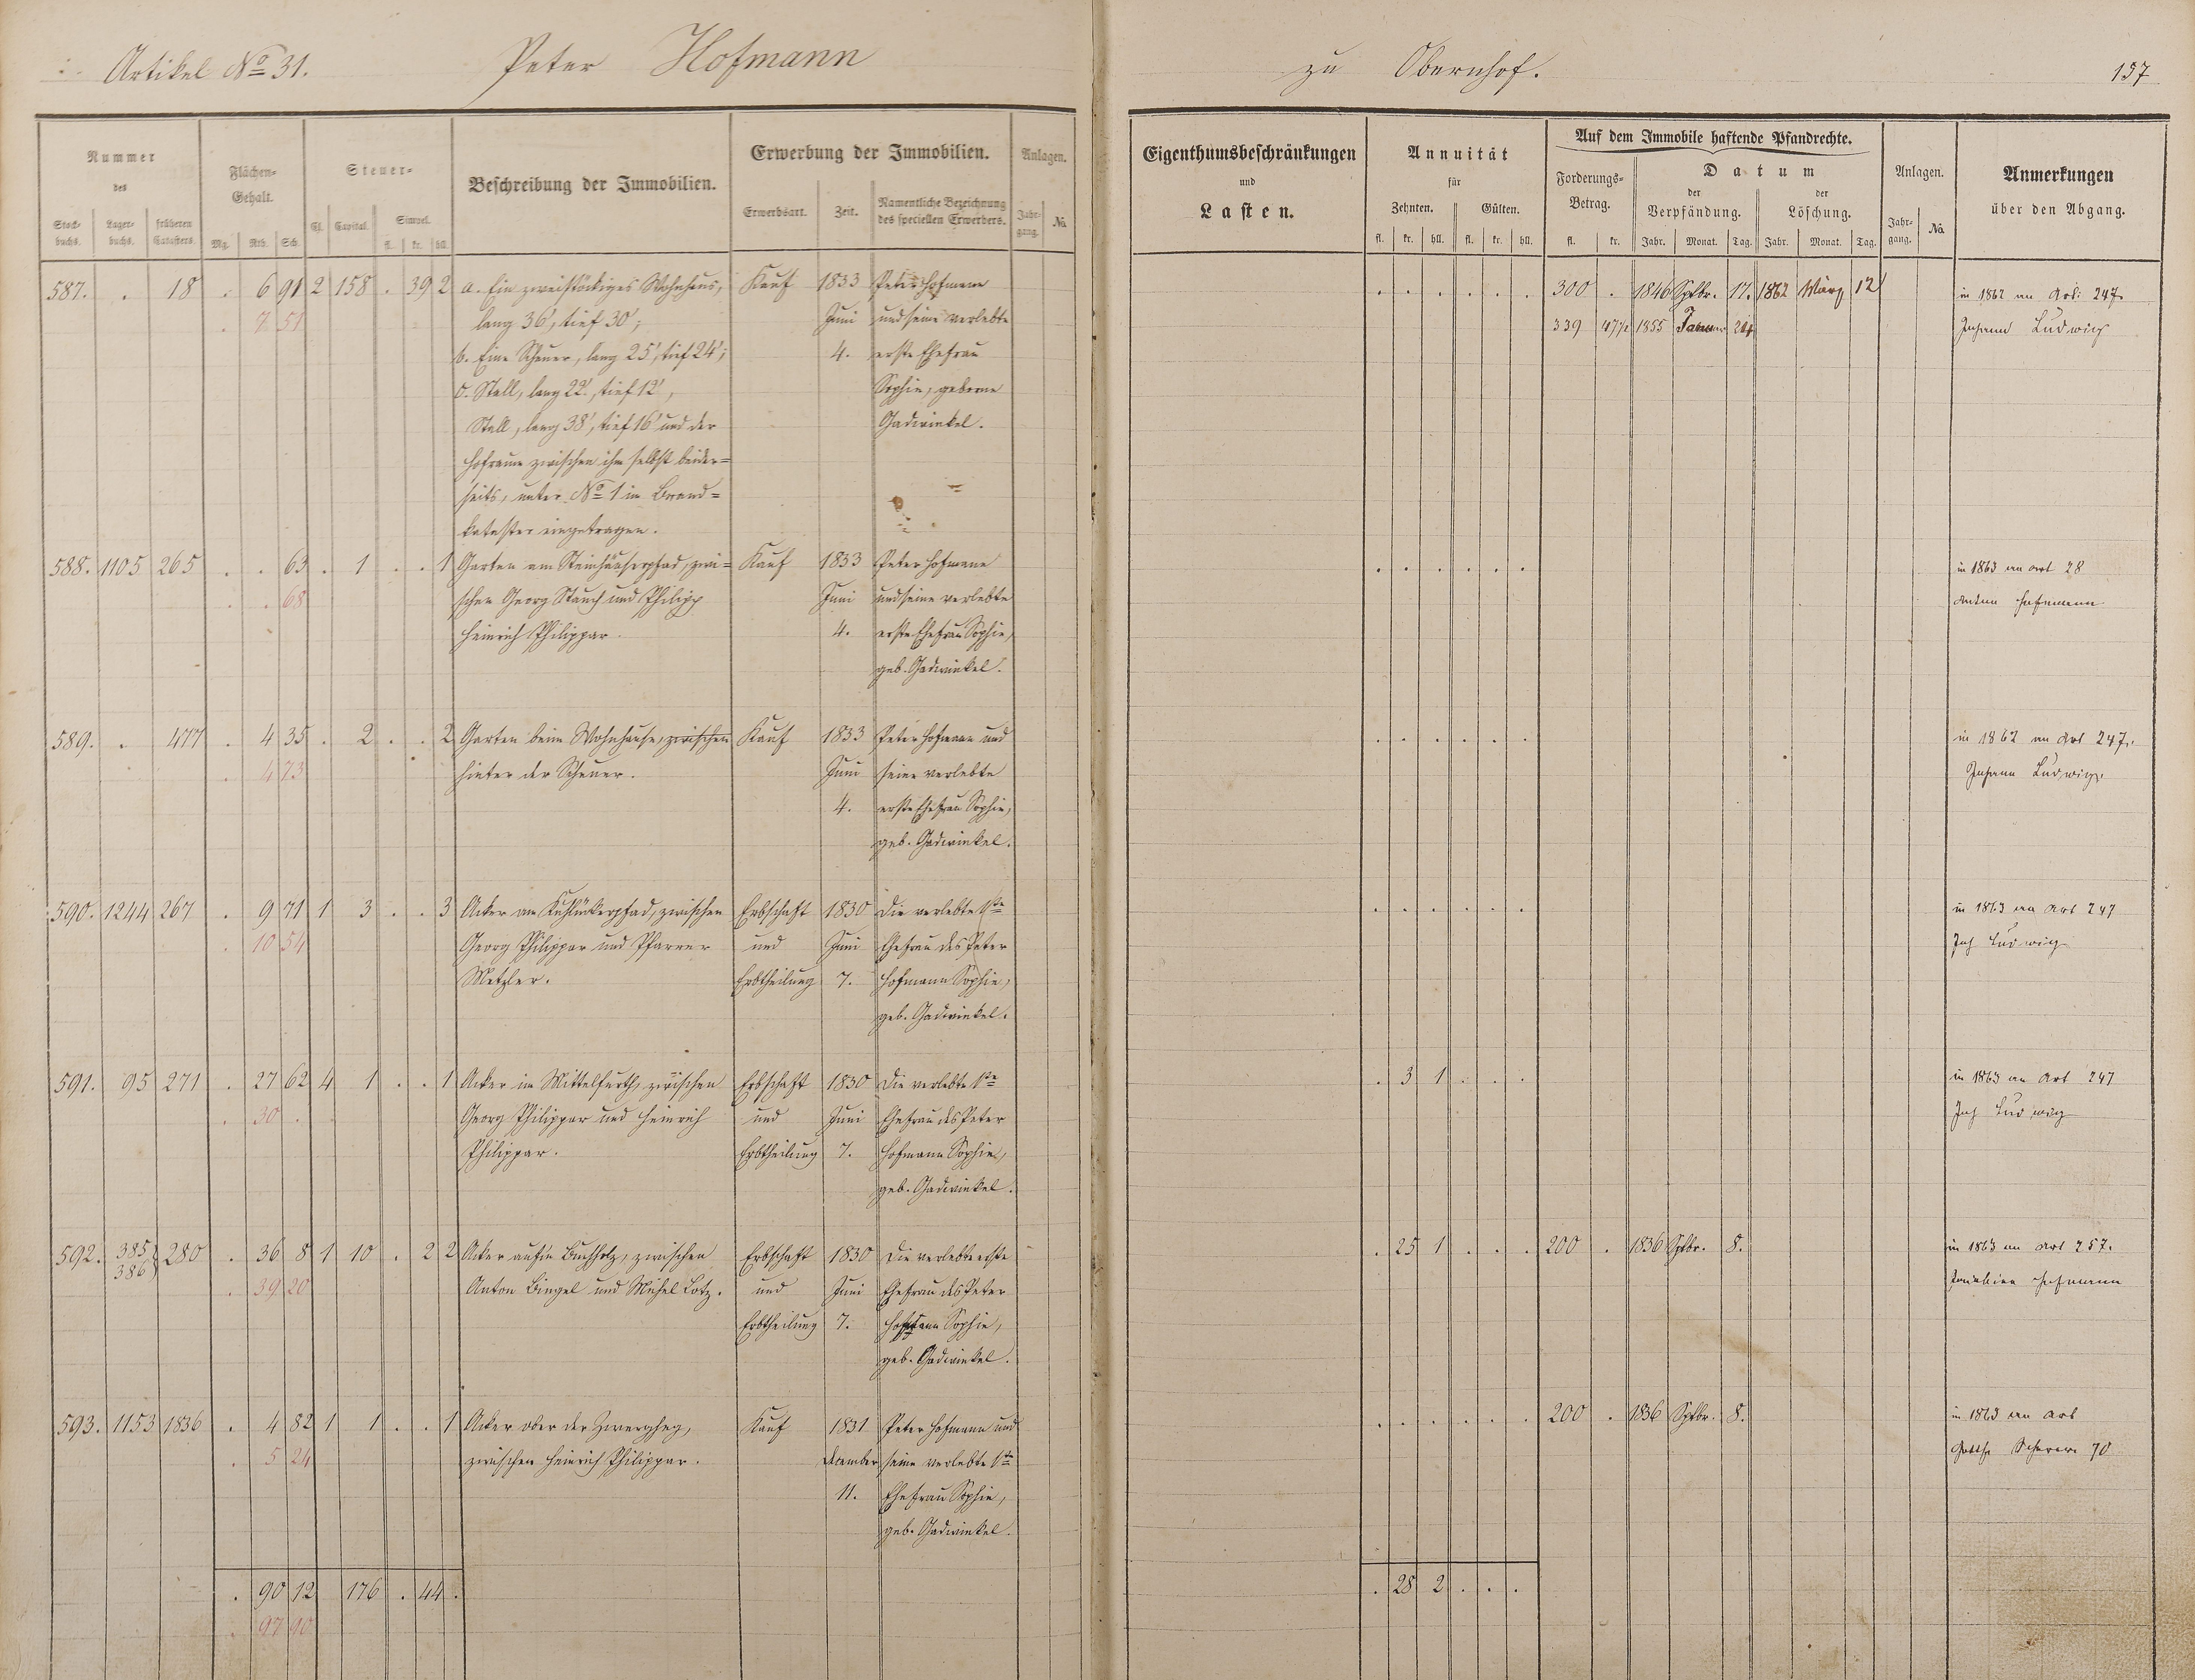 Artikel No 31. Peter Hofmann zu Obernhof. 157
Nummer des
Stockbuchs. Lagerbuchs. früheren Catasters.
Flächen-Gehalt.
Mg. Rth. Sch.
Steuer-
Cl. Capital. Simpel.
fl. kr. hll.
Beschreibung der Immobilien.
Erwerbung der Immobilien.
Erwerbsart. Zeit. Namentliche Bezeichnung des speciellen Erwerbers.
Anlagen.
Jahrgang. No.
Eigenthumsbeschränkungen
und
Lasten.
Annuität
für
Zehnten. Gülten.
fl. kr. hll. fl. kr. hll.
Auf dem Immobile haftende Pfandrechte.
Forderungs-Betrag.
fl. kr.
Datum
der Verpfändung. der Löschung.
Jahr. Monat. Tag. Jahr. Monat. Tag.
Anlagen.
Jahrgang. No.
Anmerkungen
über den Abgang.
587. . 18 . 6 91 2 158 . 39 2 a. Ein zweistöckiges Wohnhaus, Kauf 1833 Peter Hofmann . . . . . . 300 . 1846 Sptbr. 17. 1862 März 12 in 1862 an Art: 247.
. 7 51 lang 36', tief 30'; Juni und seine verlebte 339 47½ 1855 Januar 24 Johann Ludwig
b. Eine Scheuer, lang 25', tief 24'; 4. erste Ehefrau
c. Stall, lang 22', tief 12', Sophie, geborne
Stall, lang 38', tief 16' und der Gadwinkel.
Hofraum zwischen ihm selbst beider=
seits, unter No 1 im Brand=
kataster eingetragen.
588. 1105 265 . . 63 . 1 . . 1 Garten am Steinhäuserpfad, zwi= Kauf 1833 Peter Hofmann . . . . . . in 1863 an Art 28
. . 68 schen Georg Stauch und Philipp Juni und seine verlebte Anton Hofmann
Heinrich Philippar 4. erste Ehefrau Sophie,
geb. Gadwinkel.
589. . 477 . 4 35 . 2 . . 2 Garten beim Wohnhause, zwischen Kauf 1833 Peter Hofmann und . . . . . . in 1862 an Art 247.
. 4 73 hinter der Scheuer. Juni seine verlebte Johann Ludwig.
4. erste Ehefrau Sophie,
geb. Gadwinkel.
590. 1244 267 . 9 71 1 3 . . 3 Acker am zwischen Erbschaft 1830 Die verlebte 1ste . . . . . . in 1863 an Art 247
. 10 54 Georg Philippar und Pfarrer und Juni Ehefrau des Peter Joh Ludwig
Metzler. Erbtheilung 7. Hofmann Sophie,
geb. Gadwinkel.
591. 95 271 . 27 62 4 1 . . 1 Acker im Mittelfurth, zwischen Erbschaft 1830 Die verlebte 1ste . 3 1 . . . in 1863 an Art 247
. 30 . Georg Philippar und Heinrich und Juni Ehefrau des Peter Joh Ludwig
Philippar. Erbtheilung 7. Hofmann Sophie,
geb. Gadwinkel.
592. 385 386 280 . 36 8 1 10 . 2 2 Acker auf'm Buchholz, zwischen Erbschaft 1830 Die verlebte erste . 25 1 . . . 200 . 1836 Sptbr. 8. in 1863 an Art 257.
. 39 20 Anton Bingel und Michel Lotz. und Juni Ehefrau des Peter Hofmann
Erbtheilung 7. Hofmann Sophie,
geb. Gadwinkel.
593. 1153 1836 . 4 82 1 1 . . 1 Acker ober der Kauf 1831 Peter Hofmann und . . . . . . 200 . 1836 Sptbr. 8. in 1863 an Art
. 5 24 zwischen Heinrich Philippar. December seine verlebte 1te 70
11. Ehefrau Sophie,
geb. Gadwinkel.
. 90 12 176 . 44 . . 28 2 . . .
. 97 90